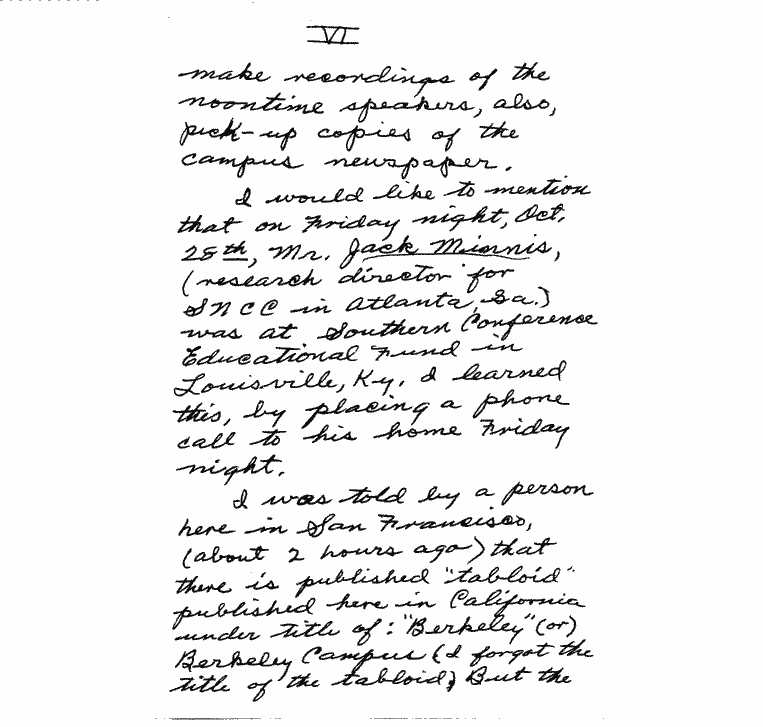 VI
make recordings of the
noontime speakers, also,
pick-up copies of the
campus newspaper.
I would like to mention
that on Friday night, Oct.
28th, Mr. Jack Minnis,
(research director for
SNCC in Atlanta, Ga.)
was at Southern Conference
Educational Fund in
Louisville, Ky. I learned
this, by placing a phone
call to his home Friday
night.
I was told by a person
here in San Francisco,
(about 2 hours ago) that
there is published "tabloid"
published here in California
under title of: "Berkeley" (or)
Berkeley Campus (I forgot the
title of the tabloid) But the